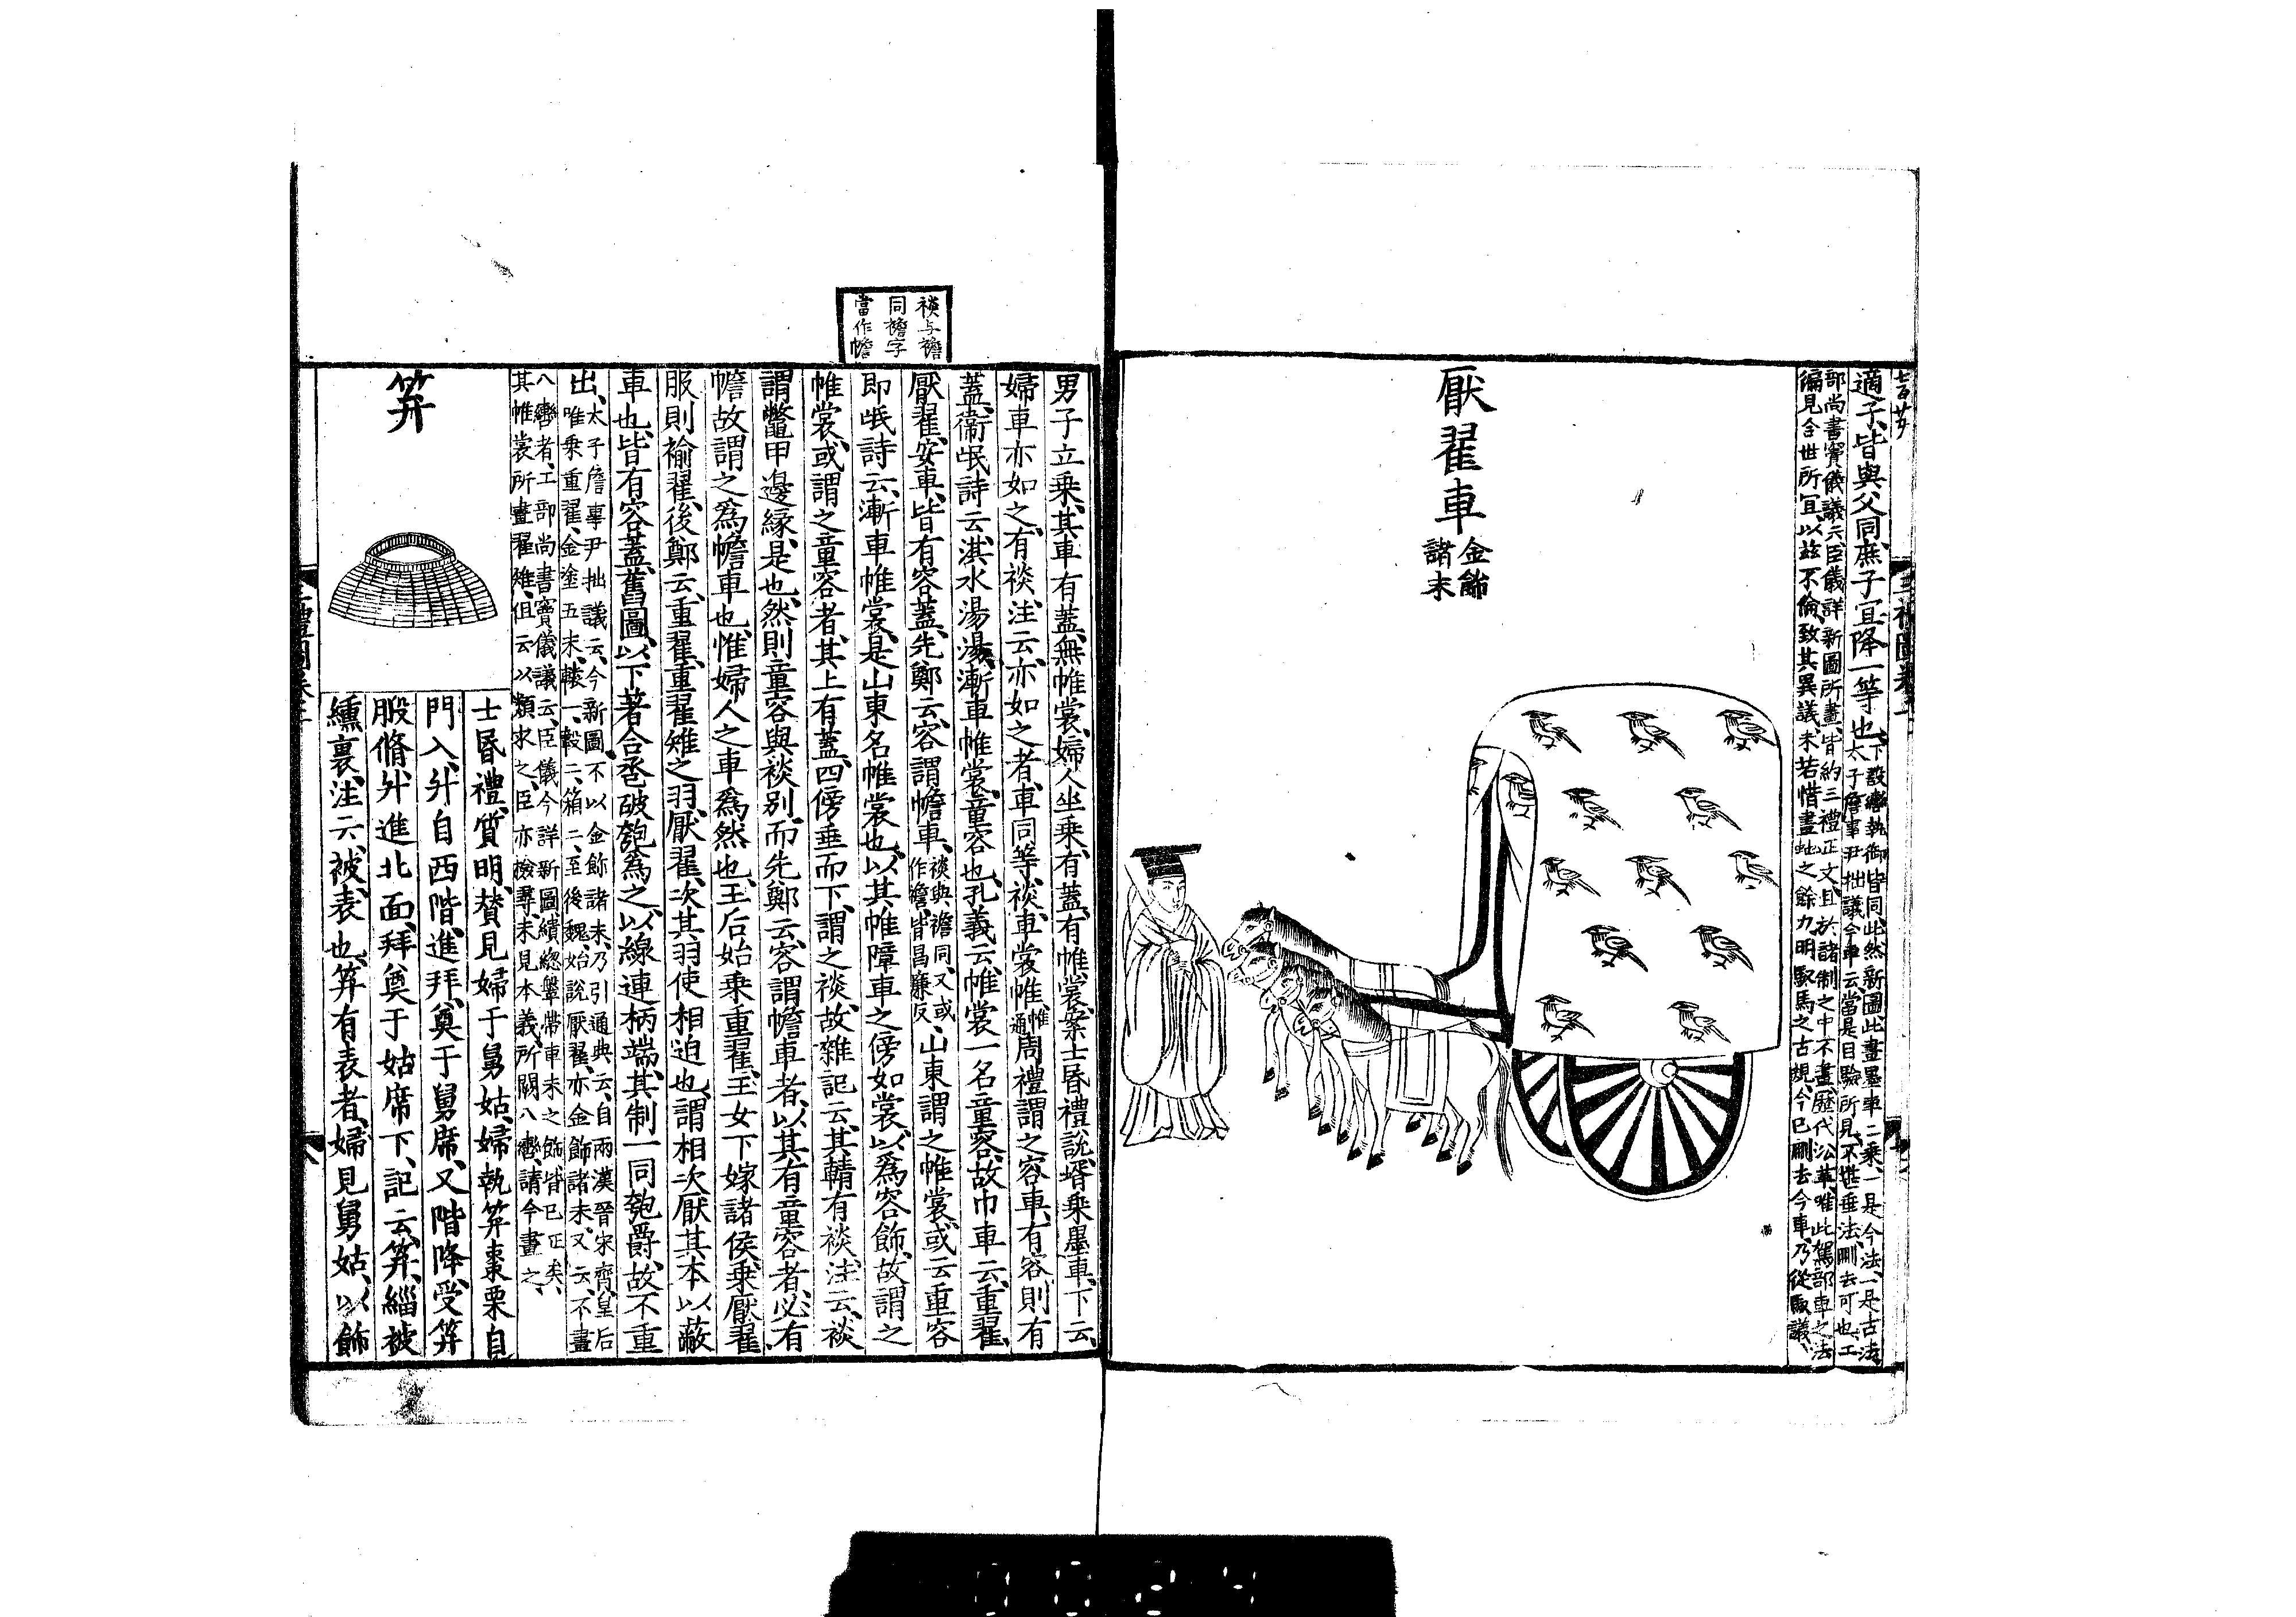 適子、皆與父同、庶子宜降一等也、下設轡執御皆同此、然新圖此畫墨車二乘、一是今法、一是古法、
太子詹事尹拙議今車云、當是目驗所見、不甚垂法、刪去可也、工
部尚書竇儀議云、臣儀詳新圖所畫、皆約三禮正文、且於諸制之中不盡、歷代沿革、唯此駕部車之法
偏見今世所宜、以茲不倫、致其異議、未若惜畫虵之餘力、明駁馬之古規、今已刪去今車、乃從駁議、
厭翟車
金飾
諸末
男子立乘、其車有蓋、無帷裳、婦人坐乘、有蓋、有帷裳、案士昏禮說、壻乘墨車、下云、
婦車亦如之、有裧、注云、亦如之者、車同等、裧、車裳帷、周禮謂之容車、有容則有
蓋、衞氓詩云、淇水湯湯、漸車帷裳、童容也、孔義云、帷裳一名童容、故巾車云、重翟、
厭翟、安車、皆有容蓋、先鄭云、容謂幨車、裧與襜同、又或作幨、皆昌廉反、山東謂之帷裳、或云重容
即氓詩云、漸車帷裳、是山東名帷裳也、以其帷障車之傍如裳、以爲容飾、故謂之
帷裳、或謂之童容者、其上有蓋、四傍垂而下、謂之裧、故雜記云、其輤有裧、注云、裧
謂鼈甲邊緣、是也、然則童容與裧別、而先鄭云、容謂幨車者、以其有童容者、必有
幨、故謂之爲幨車也、惟婦人之車爲然也、王后始乘重翟、王女下嫁諸侯、乘厭翟、
服則褕翟、後鄭云、重翟、重翟雉之羽、厭翟、次其羽使相迫也、謂相次厭其本以蔽
車也、皆有容蓋、舊圖、以下著合巹破匏爲之、以線連柄端、其制一同匏爵、故不重
出、太子詹事尹拙議云、今新圖不以金飾諸末、乃引通典云、自兩漢晉宋齊、皇后
唯乘重翟、金塗五末、轅一、轂二、箱二、至後魏、始說厭翟、亦金飾諸末、又云、不畫
八轡者、工部尚書竇儀議云、臣儀今詳新圖繢總轝帶車末之飾、皆已正矣、
其帷裳所畫翟雉、但云以類求之、臣亦檢尋、未見本義、所闕八轡、請今畫之、
笲
士昏禮、質明、贊見婦于舅姑、婦執笲棗栗自
門入、升自西階、進拜、奠于舅席、又階降、受笲
股脩、升進北面、拜奠于姑席下、記云、笲、緇被
纁裏、注云、被、表也、笲有表者、婦見舅姑、以飾
裧与襜
同襜字
當作幨